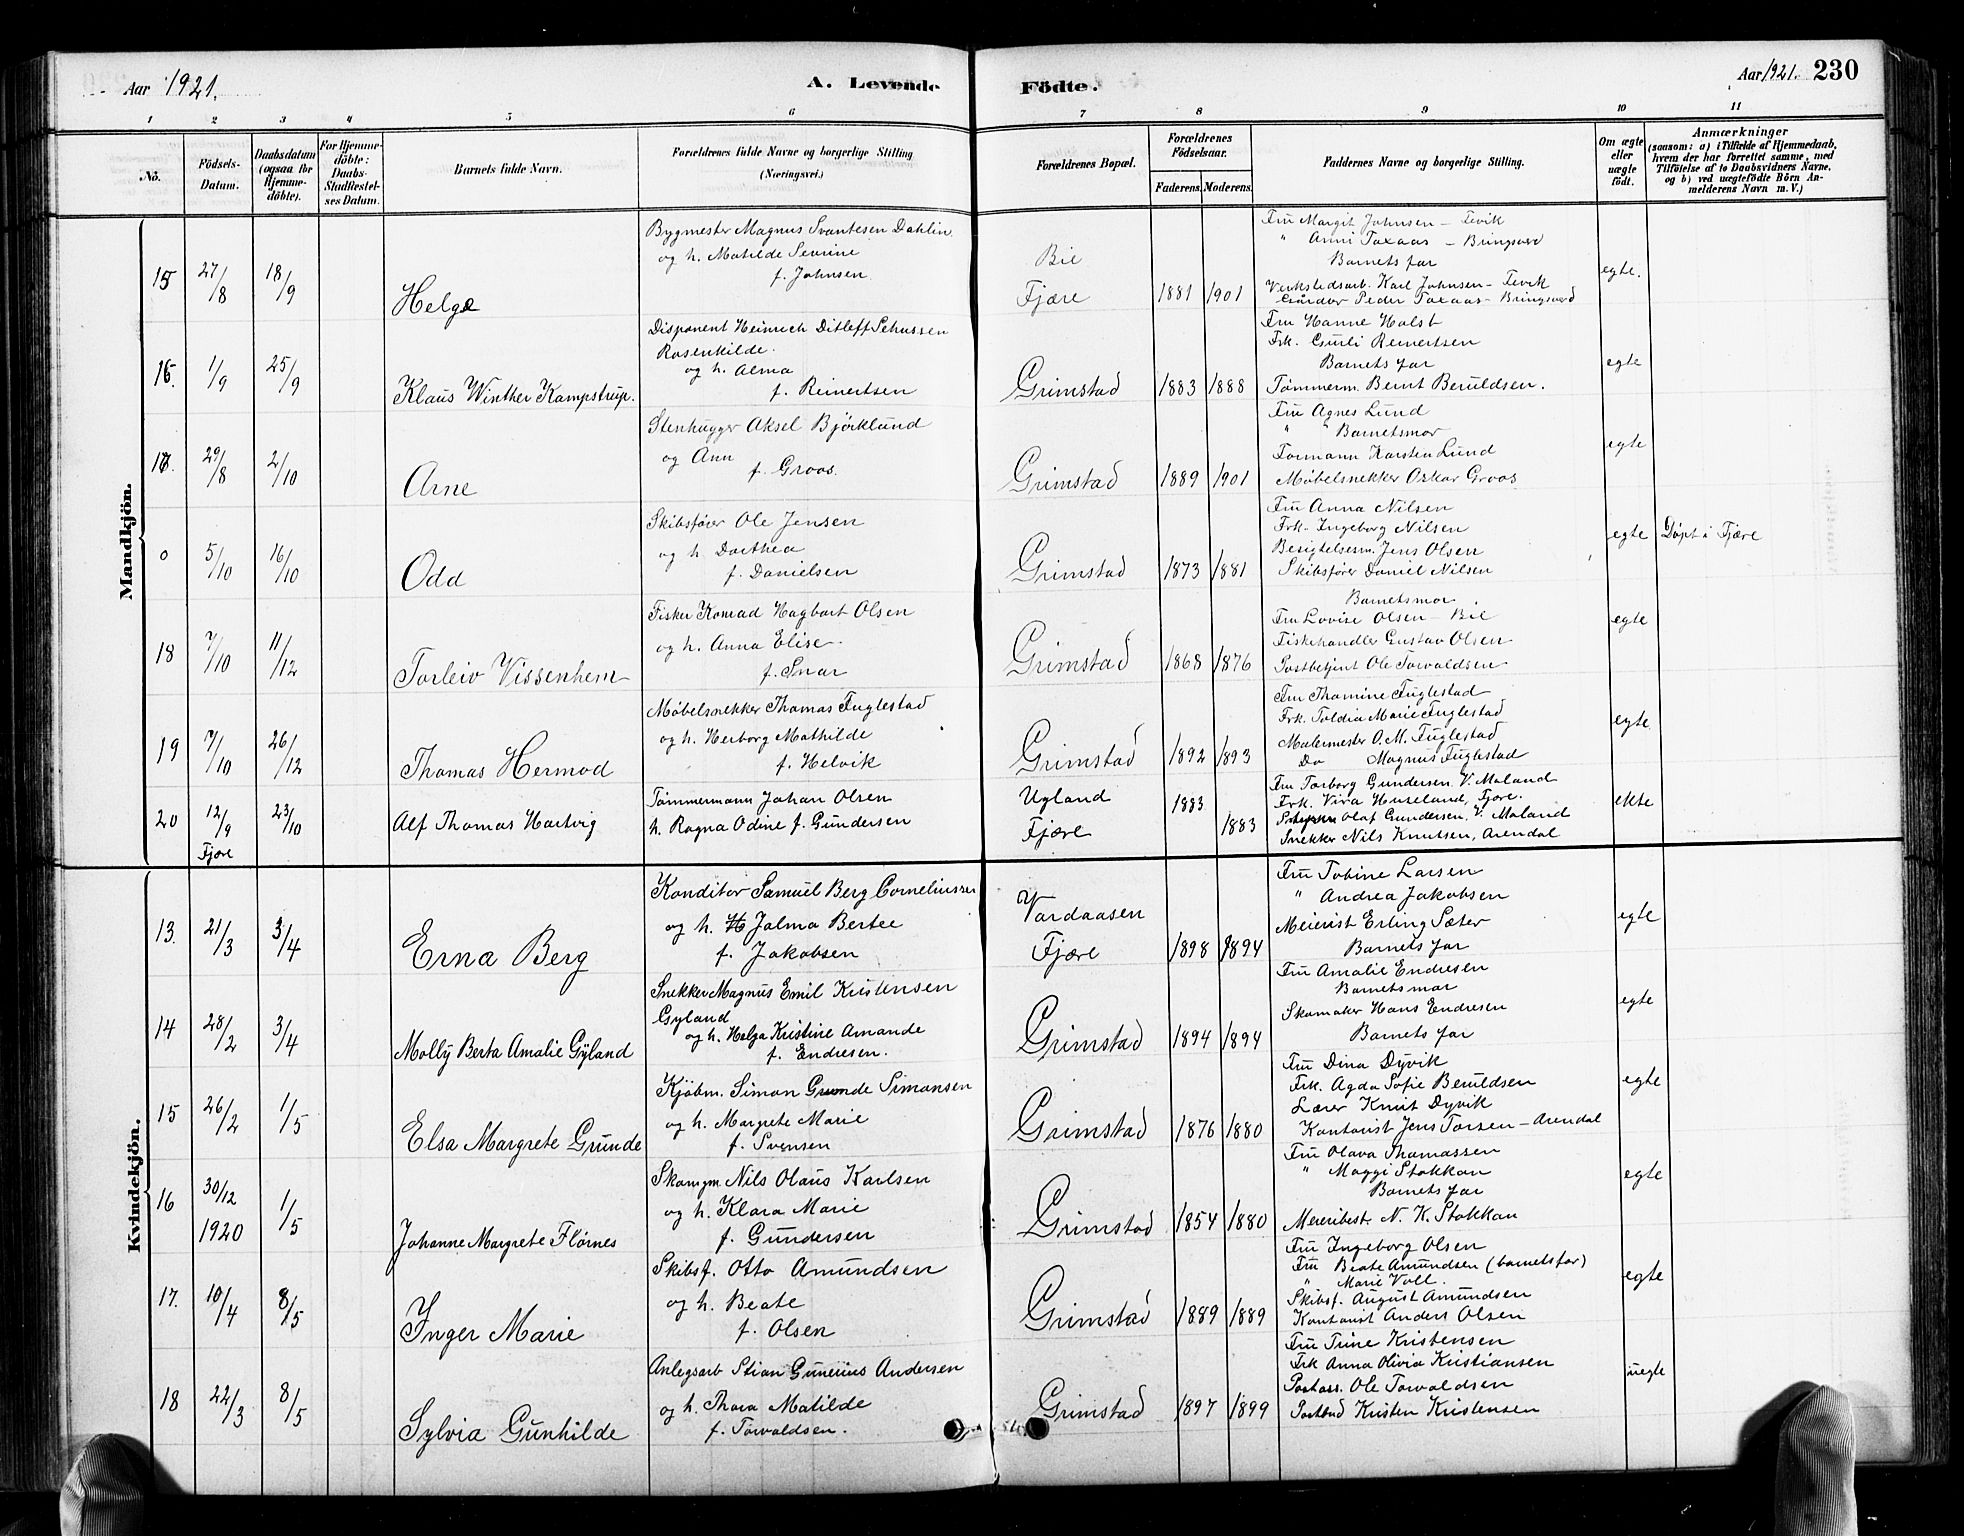 Aar 1921.
A. Levende
Födte.
Aar 1921. 230
1 2 3 4 5 6 7 8 9 10 11
No.
Födsels-Datum.
Daabsdatum (ogsaa for Hjemmedöbte).
For Hjemmedöbte: Daabs-Stadfæstelses Datum.
Barnets fulde Navn.
Forældrenes fulde Navne og borgerlige Stilling (Næringsvei.)
Forældrenes Bopæl.
Forældrenes Födselsaar.
Faderens. Moderens.
Faddernes Navne og borgerlige Stilling.
Om ægte eller uægte födt.
Anmærkninger
(saasom: a) i Tilfælde af Hjemmedaab, hvem der har forrettet samme, med Tilföielse af to Daabsvidners Navne, og b) ved uægtefödte Börn Anmelderens Navn m. V.)
Mandkjön.
15 27/8 18/9 Helge
Bygmester Magnus Svantesen Dahlin
og h. Matilde Severine
f. Johnsen
Bie
Fjære
1881 1901
Fru Margit Johnsen - Fevik
" Anni Taxaas - Bringsværd
Barnets far
Verkstedsarb. Karl Johnsen - Fevik
Gårdbr Peder Taxaas - Bringsværd
egte.
16. 1/9 25/9 Klaus Winther Kampstrup.
Disponent Heinrich Ditleff Sehussen
Rosenkilde.
og h. Alma
f. Reinertsen
Grimstad
1883 1888
Fru Hanne Holst
Frk. Gurli Reinertsen
Barnets far
Tømmerm. Bernt Beruldsen.
egte
17. 29/8 2/10 Arne
Stenhugger Aksel Björklund
og Ann
f. Groos.
Grimstad
1889 1901
Fru Agnes Lund
" Barnetsmor
Formann Karsten Lund
Møbelsnekker Oskar Groos
egte
0 5/10 16/10 Odd
Skibsfører Ole Jensen
og h. Dorthea
f. Danielsen
Grimstad
1873 1881
Fru Anna Nilsen
Frk. Ingeborg Nilsen
Besigtelsesm. Jens Olsen
Skibsfører Daniel Nilsen
egte
Døpt i Fjære
18 7/10 11/12 Torleiv Vissenhem
Fisker Konrad Hagbart Olsen
og h. Anna Elise.
f. Snar
Grimstad
1868 1876
Barnetsmor
Fru Lovise Olsen - Bie
Fiskehandler Gustav Olsen
Postbetjent Ole Torvaldsen
egte
19 7/10 26/12 Thomas Hermod
Møbelsnekker Thomas Fuglestad
og h. Herborg Mathilde
f. Helvik
Grimstad
1892 1893
Fru Thomine Fuglestad
Frk. Toldia Marie Fuglestad
Malermester O. M. Fuglestad
Do Magnus Fuglestad
egte
20 12/9 23/10 Alf Thomas Hartvig
Fjære
Tømmermann Johan Olsen
h. Ragna Odine f. Gundersen
Ugland
Fjære
1883 1883
Fru Torborg Gundersen V. Moland
Frk. Vira Huseland, Fjære.
Olaf Gundersen, V. Moland
Snekker Nils Knutsen, Arendal
ekte
Kvindekjön.
13. 21/3 3/4 Erna Berg
Konditor Samuel Berg Corneliussen
og h. Hjalma Bertee
f. Jakobsen
Vardaasen
Fjære
1898 1894
Fru Tobine Larsen
" Andrea Jakobsen
Meierist Erling Sæter
Barnets far
egte
14 28/2 3/4 Molly Berta Amalie Gyland
Snekker Magnus Emil Kristensen
Gyland
og h. Helga Kristine Amande
f. Endresen.
Grimstad
1894 1894
Fru Amalie Endresen
Barnetsmor
Skomaker Hans Endresen
Barnets far
egte
15 26/2 1/5 Elsa Margrete Grunde
Kjöbm. Simon Grunde Simonsen
og h. Margrete Marie
f. Svensen
Grimstad
1876 1880
Fru Dina Dyvik
Frk. Agda Sofie Beruldsen
Lærer Knut Dyvik
Kontorist Jens Torsen - Arendal
egte
16 30/12 1920 1/5 Johanne Margrete Flørnes
Skomgm. Nils Olaus Karlsen
og h. Klara Marie
f. Gundersen
Grimstad
1854 1880
Fru Olava Thomassen
" Maggi Stokkan
Barnets far
Meieribest. N. K. Stokkan
egte
17. 10/4 8/5 Inger Marie
Skibsf. Otto Amundsen
og h. Beate
f. Olsen
Grimstad
1889 1889
Fru Ingeborg Olsen
Fru Beate Amundsen (barnetsfar)
" Marie Voll.
Skibsf. August Amundsen
Kontorist Anders Olsen
egte
18 22/3 8/5 Sylvia Gunhilde
Anlegsarb Stian Gunerius Andersen
og h. Thora Matilde
f. Torvaldsen.
Grimstad
1897 1899
Fru Trine Kristensen
Frk Anna Olivia Kristiansen
Postass. Ole Torvaldsen
Postbud Kristen Kristensen
uegte